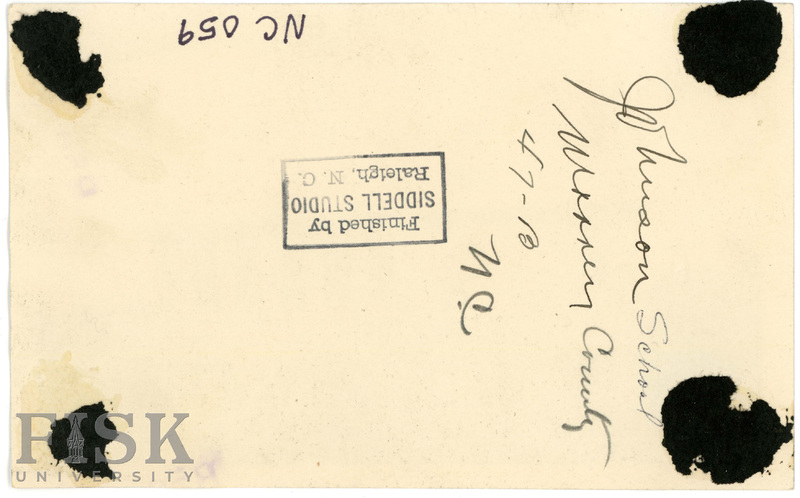 NC 059
Johnson School
Warren County
47-B
N.C.
Finished by
SIDDELL STUDIO
Raleigh, N. C.
FISK
UNIVERSITY